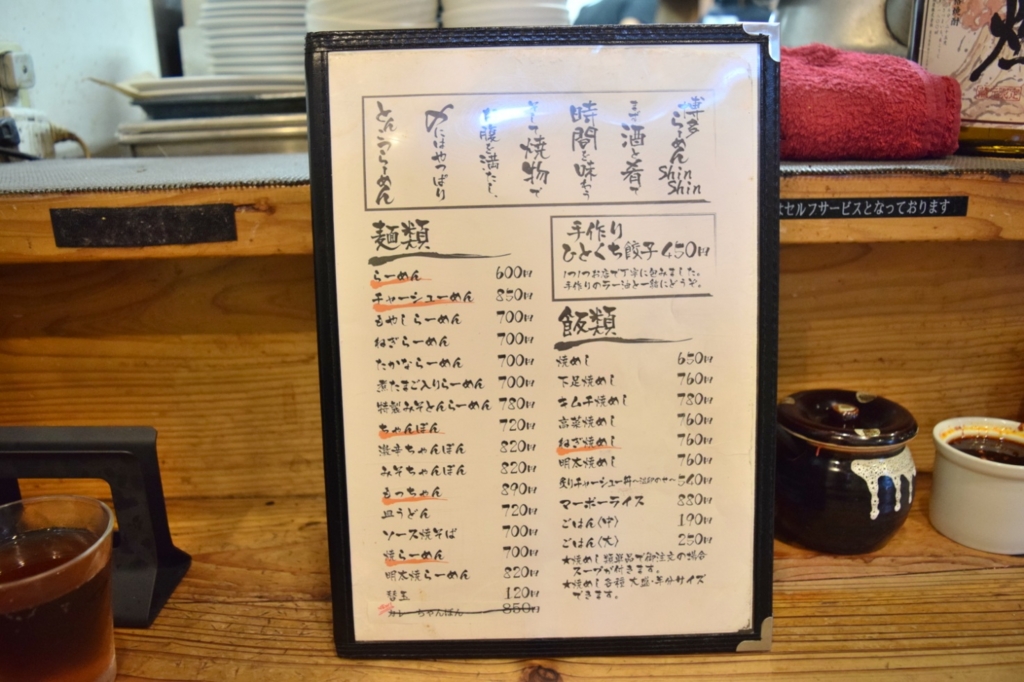 博多らーめん Shin Shin
まず酒と肴で
時間を味わう
そして焼物で
お腹を満たし、
〆にはやっぱり
とんこつらーめん
麺類
らーめん 600円
チャーシューめん 850円
もやしらーめん 700円
ねぎらーめん 700円
たかならーめん 700円
煮たまご入りらーめん 700円
特製みそとんらーめん 780円
ちゃんぽん 720円
激辛ちゃんぽん 820円
みそちゃんぽん 820円
もっちゃん 890円
皿うどん 720円
ソース焼そば 700円
焼らーめん 700円
明太焼らーめん 820円
替玉 120円
カレーちゃんぽん 850円
手作り
ひとくち餃子 450円
1つ1つお店で丁寧に包みました。
手作りのラー油と一緒にどうぞ。
飯類
焼めし 650円
下足焼めし 760円
キムチ焼めし 780円
高菜焼めし 760円
ねぎ焼めし 760円
明太焼めし 760円
炙りチャーシュー丼 540円
マーボーライス 880円
ごはん(中) 190円
ごはん(大) 250円
★焼めし類単品で御注文の場合
スープが付きます。
★焼めし各種 大盛・半分サイズ
できます。
はセルフサービスとなっております